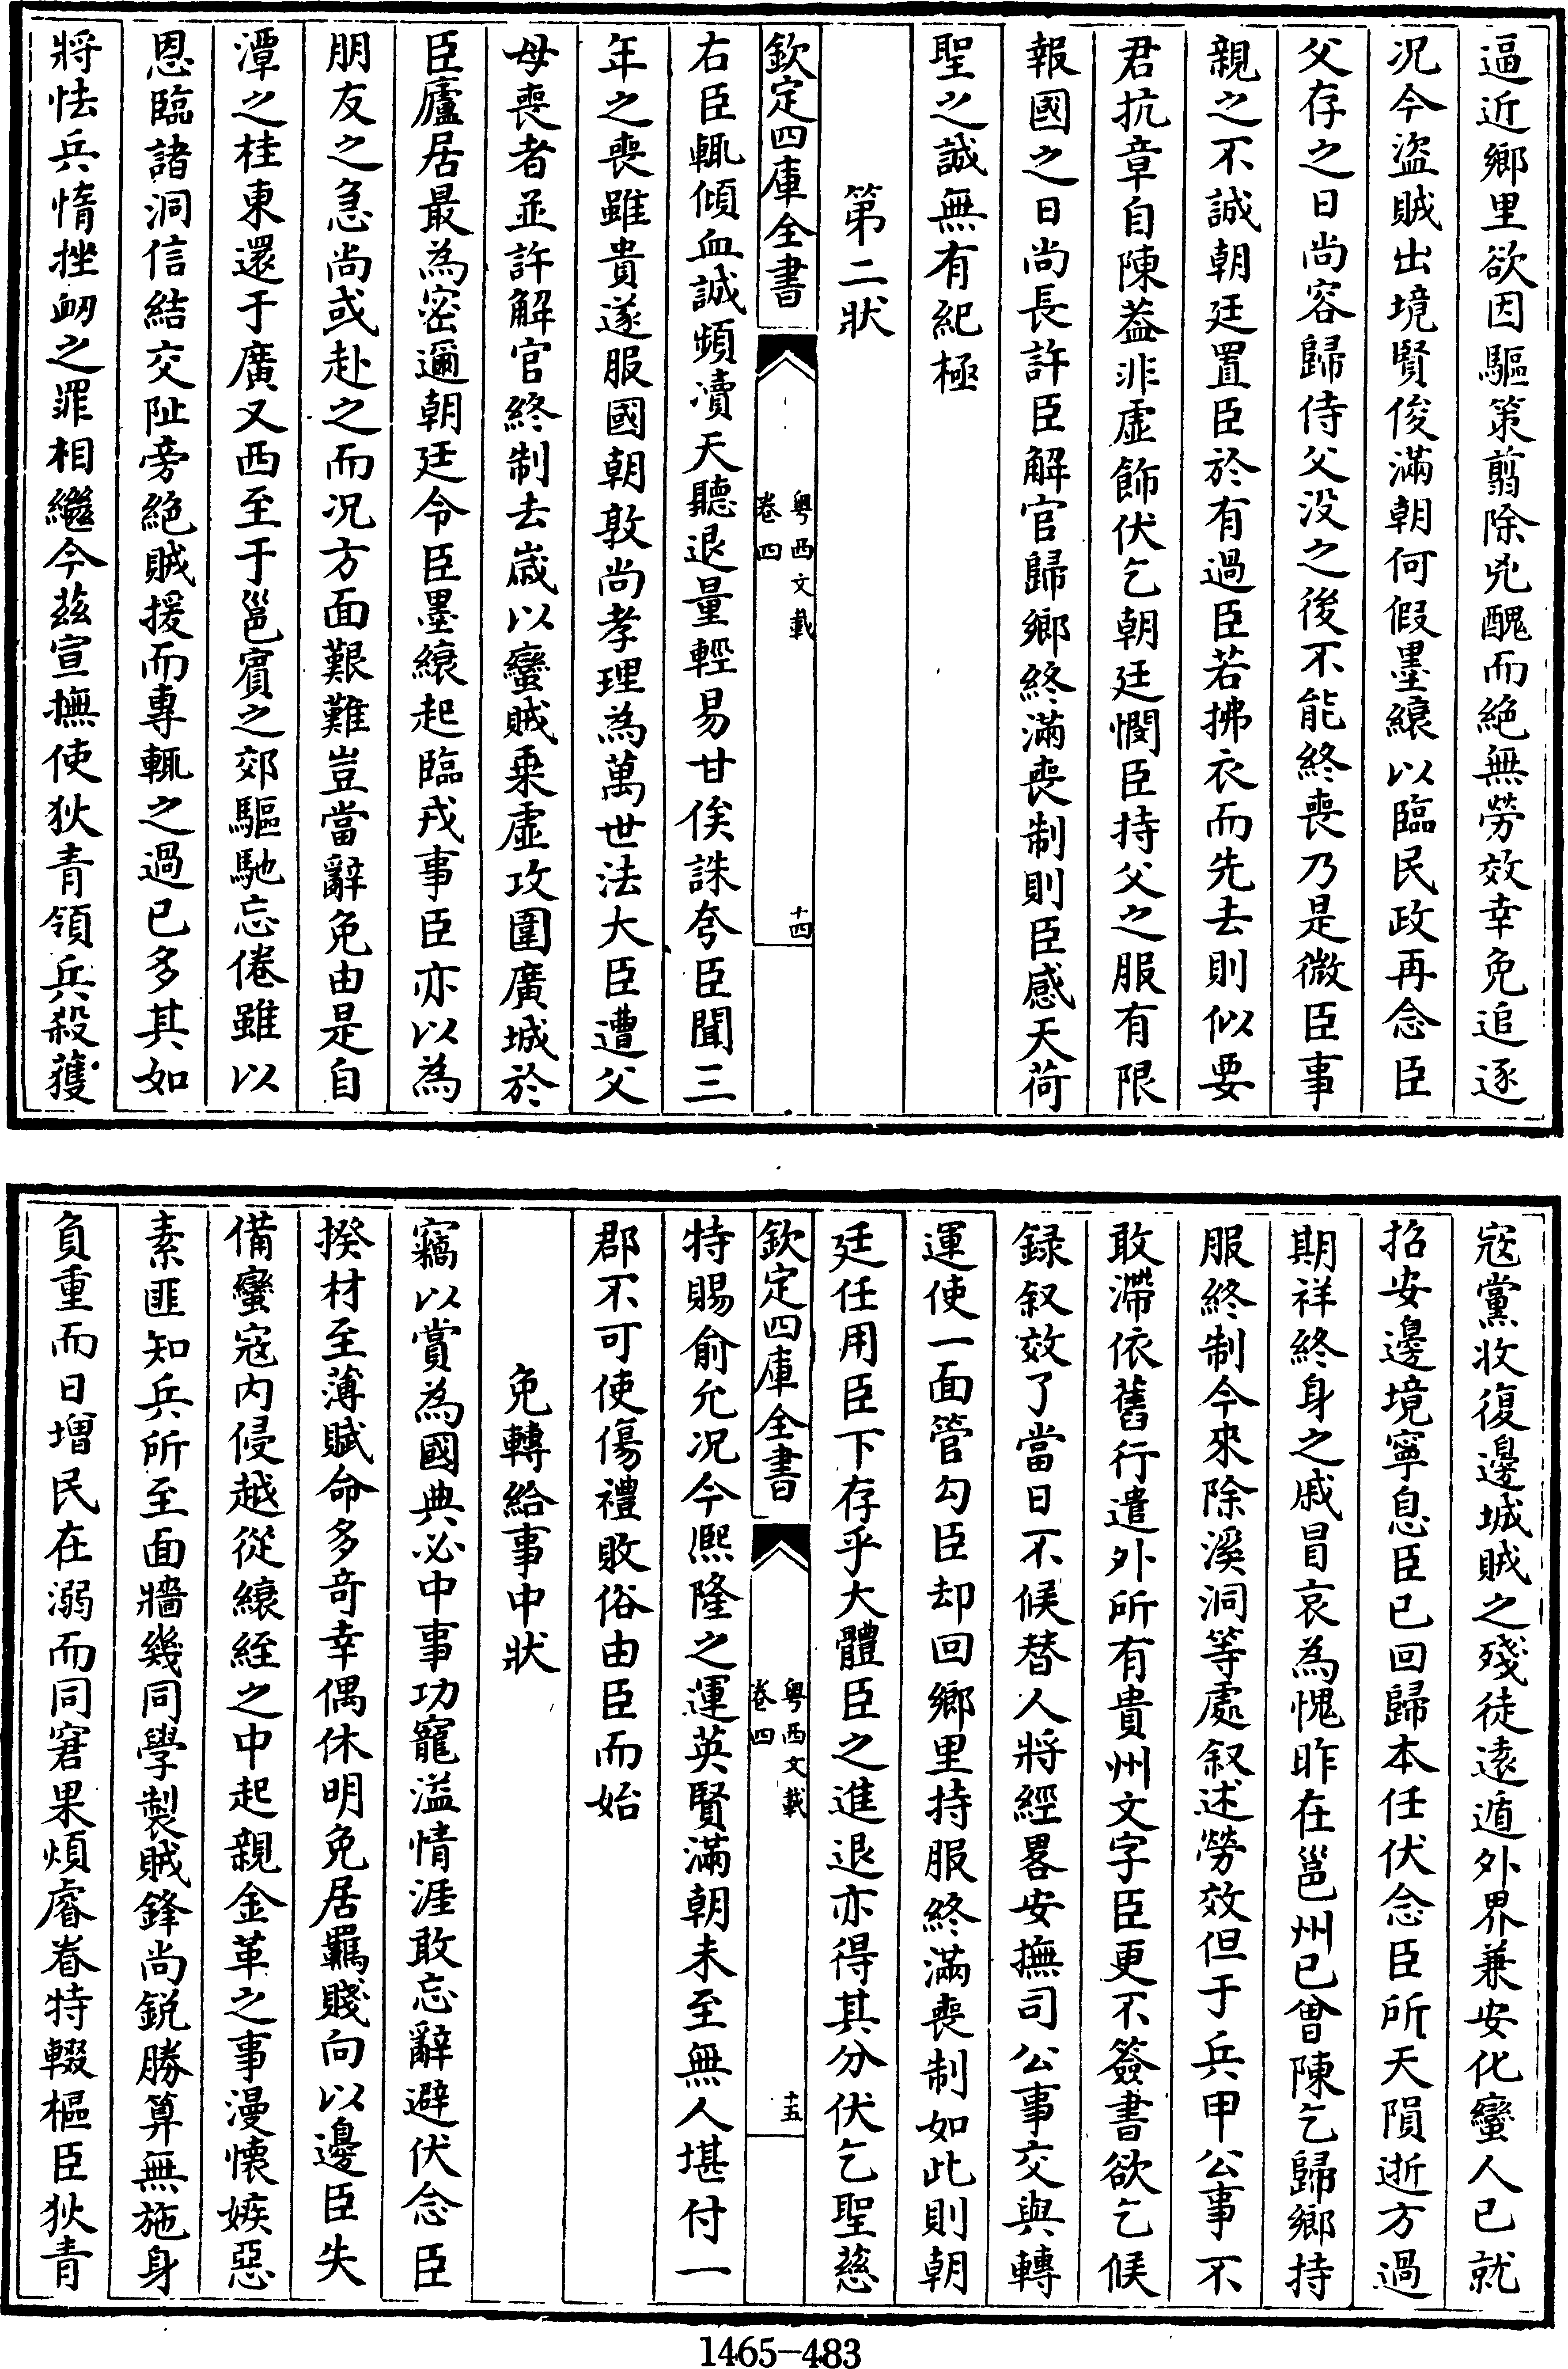 逼近鄉里欲因驅策翦除兇醜而絶無勞效幸免追逐
况今盜賊出境賢俊滿朝何假墨縗以臨民政再念臣
父存之日尚容歸侍父没之後不能終喪乃是微臣事
親之不誠朝廷置臣於有過臣若拂衣而先去則似要
君抗章自陳葢非虛飾伏乞朝廷憫臣持父之服有限
報國之日尚長許臣解官歸鄉終滿喪制則臣感天荷
聖之誠無有紀極
第二狀
欽定四庫全書
粤西文載
卷四
十四
右臣輒傾血誠頻瀆天聽退量輕易甘俟誅夸臣聞三
年之喪雖貴遂服國朝敦尚孝理為萬世法大臣遭父
母喪者並許解官終制去歲以蠻賊乗虛攻圍廣城於
臣廬居最為密邇朝廷令臣墨縗起臨戎事臣亦以為
朋友之急尚或赴之而况方面艱難豈當辭免由是自
潭之桂東還于廣又西至于邕賓之郊驅馳忘倦雖以
恩臨諸洞信結交阯旁絶賊援而專輒之過已多其如
將怯兵惰挫衂之罪相繼今兹宣撫使狄青領兵殺獲
宼黨收復邊城賊之殘徒遠遁外界兼安化蠻人已就
招安邊境寧息臣已回歸本任伏念臣所天隕逝方過
期祥終身之戚冒哀為愧昨在邕州已曾陳乞歸鄉持
服終制今來除溪洞等處叙述勞效但于兵甲公事不
敢滯依舊行遣外所有貴州文字臣更不簽書欲乞候
録叙效了當日不候替人將經畧安撫司公事交與轉
運使一面管勾臣却回鄉里持服終滿喪制如此則朝
廷任用臣下存乎大體臣之進退亦得其分伏乞聖慈
欽定四庫全書
粤西文載
卷四
十五
特賜俞允况今熈隆之運英賢滿朝未至無人堪付一
郡不可使傷禮敗俗由臣而始
免轉給事中狀
竊以賞為國典必中事功寵溢情涯敢忘辭避伏念臣
揆材至薄賦命多奇幸偶休明免居羈賤向以邊臣失
備蠻宼内侵越從縗絰之中起親金革之事漫懐嫉惡
素匪知兵所至面牆幾同學製賊鋒尚銳勝算無施身
負重而日增民在溺而同窘果煩睿眷特輟樞臣狄青
1465-483